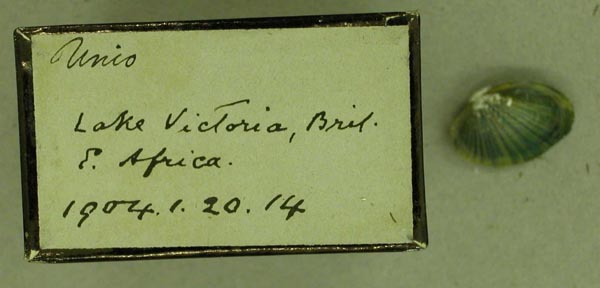 Unio
Lake Victoria, Brit.
E. Africa.
1904.1.20.14